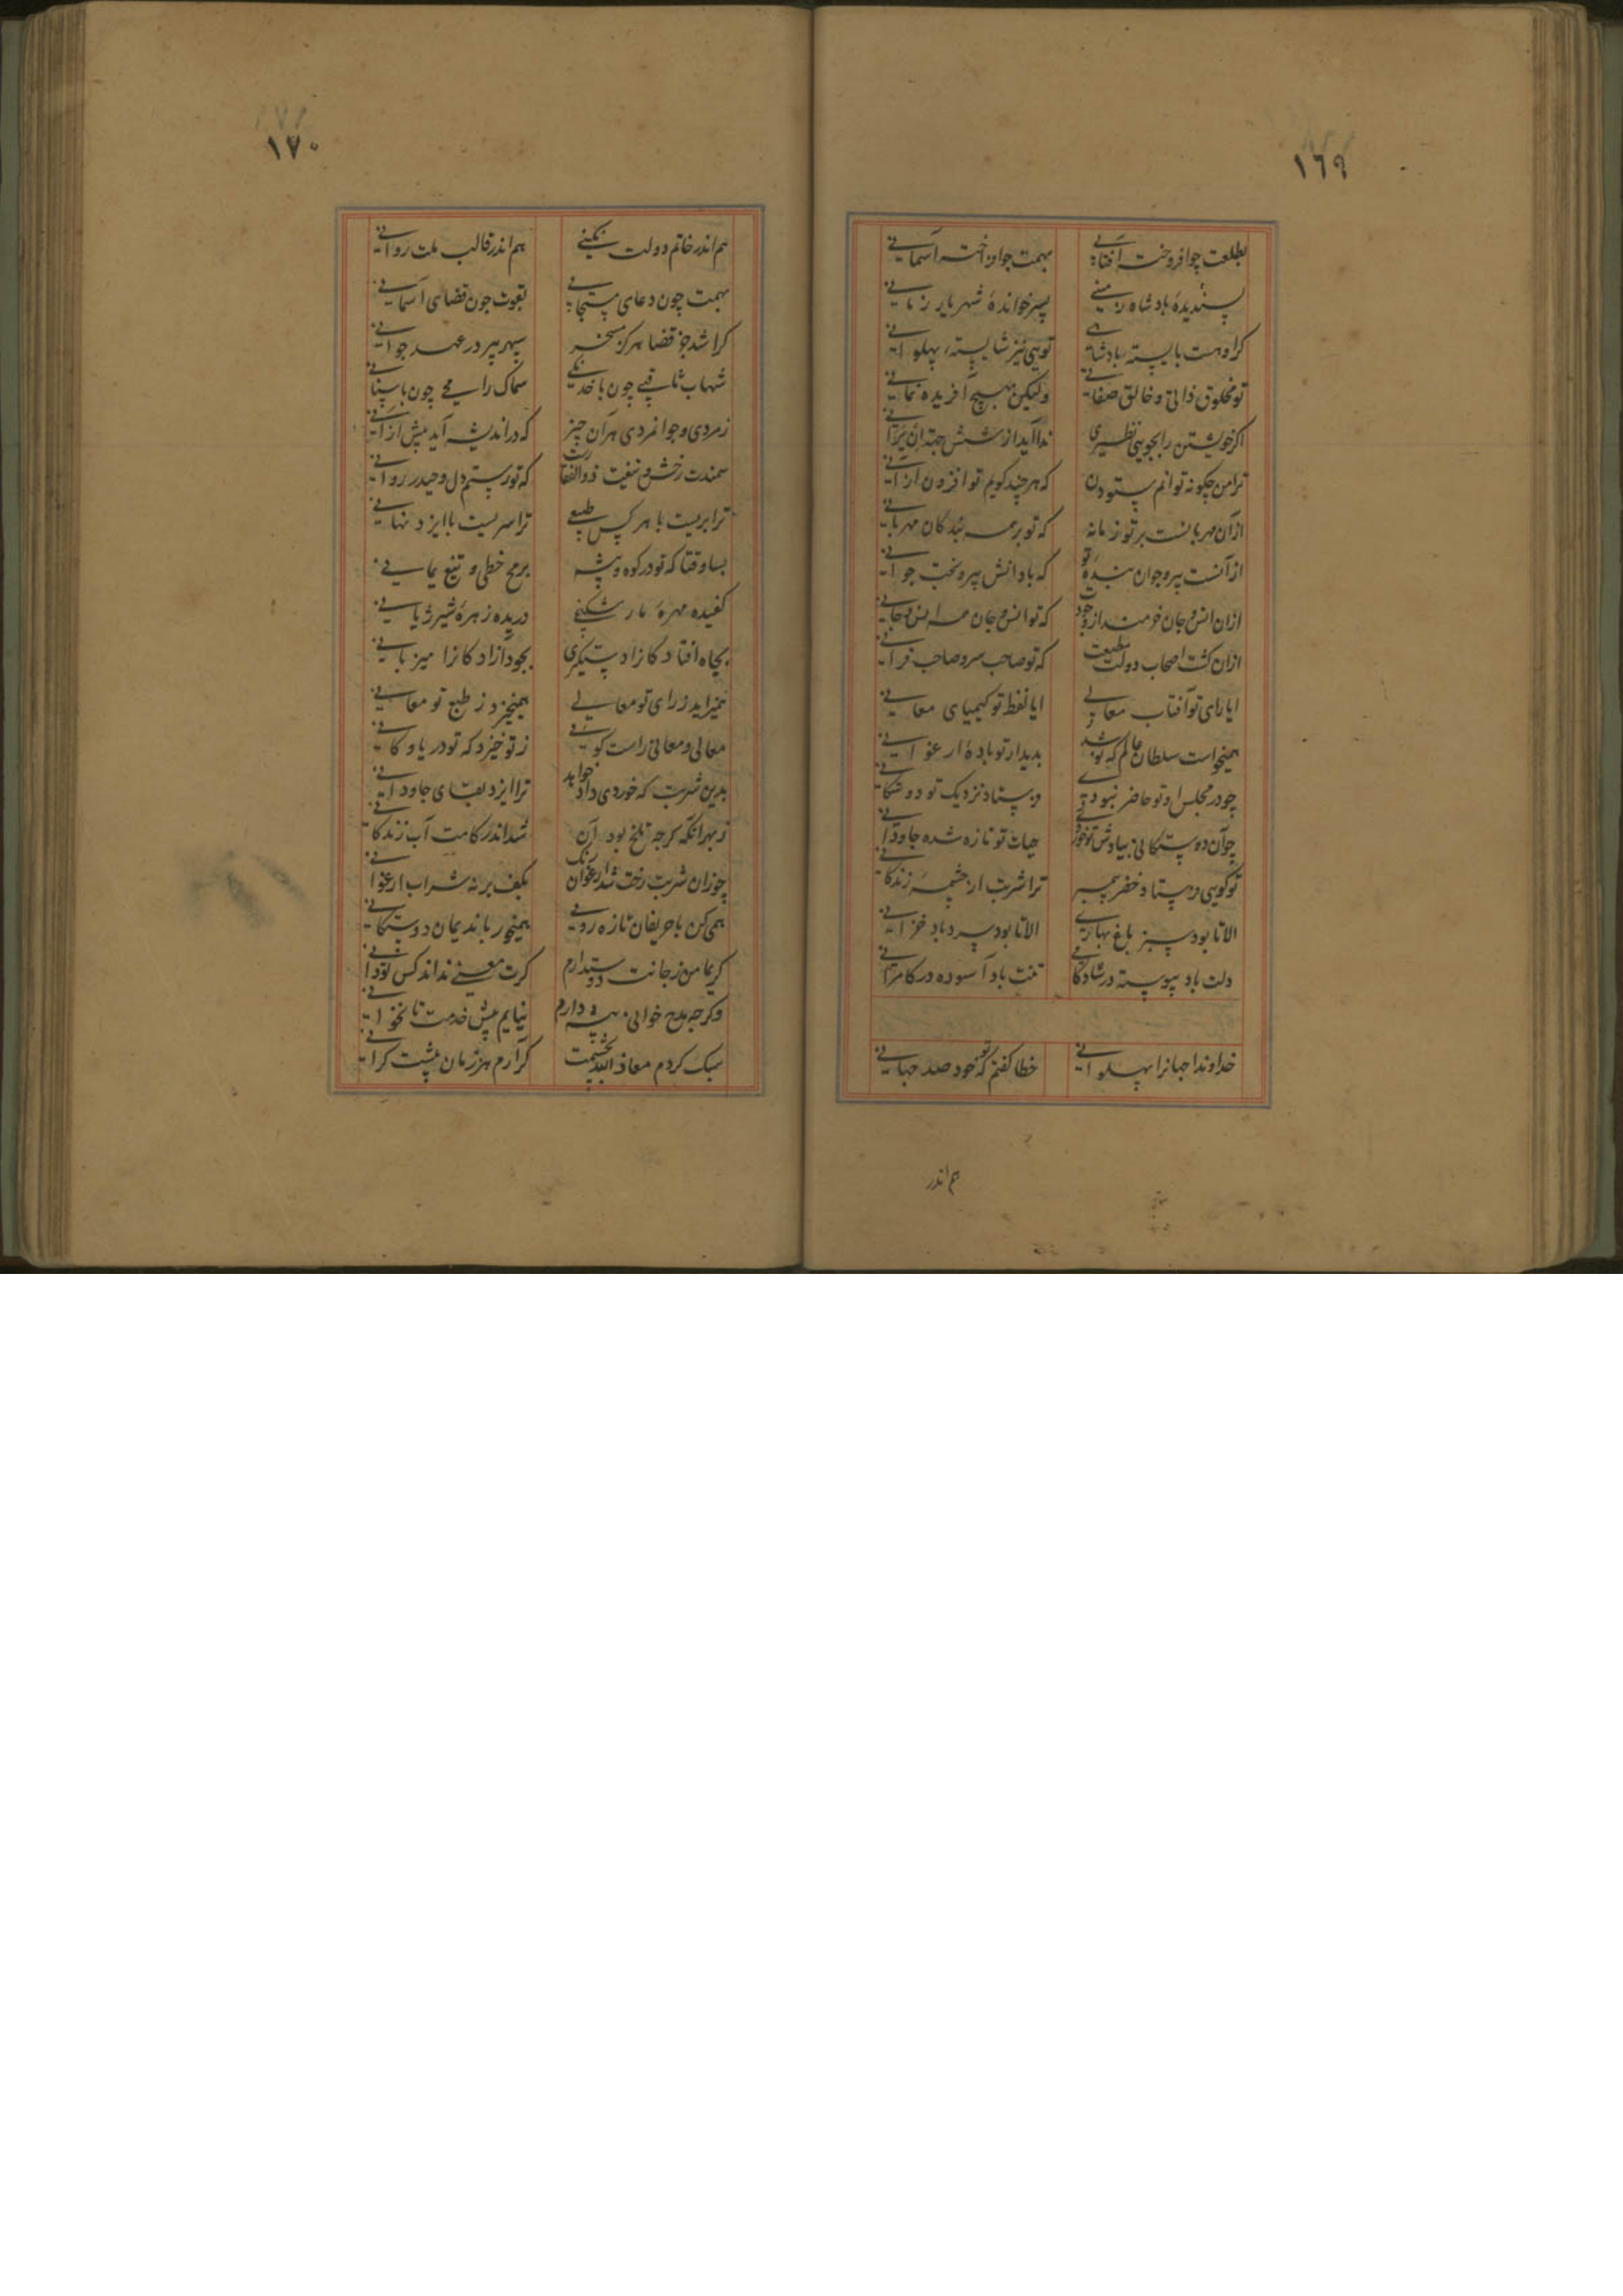 ١٦٩
بطلعت چو افروخته آفتابی بهمت چو افراخته آسمانی
پسندیدهٔ پادشاه زمینی پسر خواندهٔ شهریار زمانی
کر او هست بایسته پادشاهی تویی نیز شایسته پهلوانی
تو مخلوق ذاتی و خالق صفاتی ولیکن بهیچ آفریده نمانی
اکر خویشتن را بجویی نظیری ندا آید از شش جهت لن ترانی
ترا من چکونه توانم ستودن که هر چند کویم تو افزون ازانی
از آن مهربانست بر تو زمانه که تو بر همه بندکان مهربانی
از آنست پیر و جوان بندهٔ تو که با دانش پیر و بخت جوانی
ازان انس و جان خرمند از وجودت که تو انس و جان همه انس و جانی
ازان کشت اصحاب دولت مطیعت که تو صاحب سر و صاحب قرانی
ایا رای تو آفتاب معالی ایا لفظ تو کیمیای معانی
همیخواست سلطان عالم که نوشد بدیدار تو بادهٔ ارغوانی
چو در مجلس او تو حاضر نبودی فرستاد نزدیک تو دوستکانی
چو آن دوستکانی بیادش تو خوردی حیات تو تازه شده جاودانی
تو کویی فرستاد خضر پیمبر ترا شربت از چشمهٔ زندکانی
الا تا بود سبز باغ بهاری الا تا بود سرد باد خزانی
دلت باد پیوسته در شادکامی تنت باد آسوده در کامرانی
خداوندا جهانرا پهلوانی خطا کفتم که تو خود صد جهانی
هم اندر
١٧٠
هم اندر خاتم دولت نکینی هم اندر قالب ملت روانی
بهمت چون دعای مستجابی بقوت چون قضای آسمانی
کرا شد جز قضا هرکز مسخر سپهر پیر در عهد جوانی
شهاب ثاقبی چون با خدنکی سماک رامحی چون با سنانی
ز مردی و جوانمردی هر آن چیز که در اندیشه آید بیش ازانی
سمندت رخش و تیغت ذوالفقارست که تو رستم دل و حیدر روانی
ترا بریست با هر کس طبیعی ترا سریست با ایزد نهانی
بسا وقتا که تو در کوه و بیشه برمح خطی و تیغ یمانی
کفیده مهرهٔ مار شکنجی دریده زهرهٔ شیر ژیانی
بجاه افتادکانرا دستکیری بجود آزادکانرا میزبانی
همیزاید ز رای تو معالی همیخیزد ز طبع تو معانی
معالی و معانی راست کویی ز تو خیزد که تو دریا و کانی
بدین شربت که خوردی داد خواهد ترا ایزد بقای جاودانی
ز بهر آنکه کرچه تلخ بود آن شد اندر کامت آب زندکانی
چو زان شربت رخت شد ارغوان رنک بکف بر نه شراب ارغوانی
همی کن با حریفان تازه رویی همیخور با ندیمان دوستکانی
کریما من ز جانت دوستدارم کرت معنی نداند کس تو دانی
وکرچه مدح خوانی پیشه دارم نیایم پیش خدمت تا نخوانی
سبک کردم معاذ الله بچشمت کر آرم هر زمان پیشت کرانی